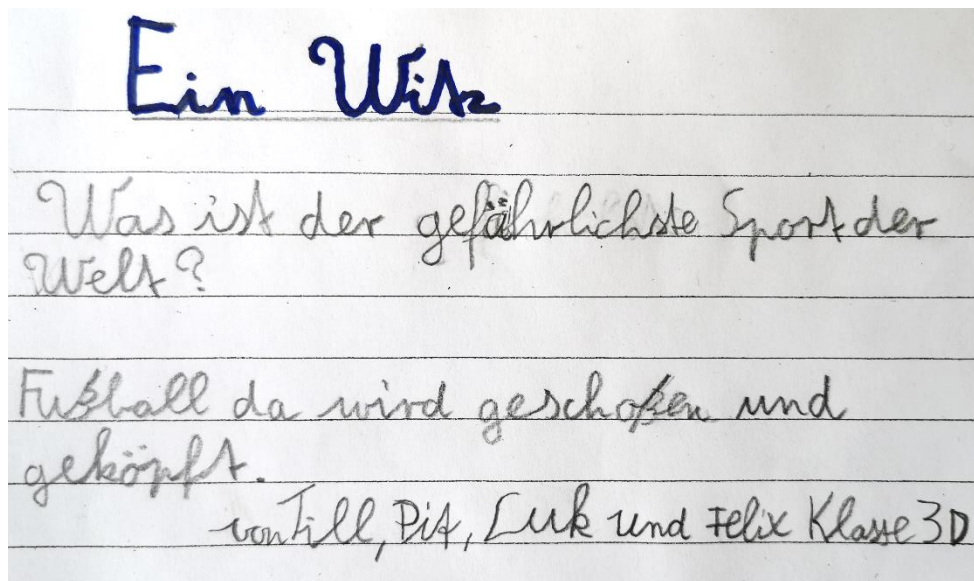 Ein Witz
Was ist der gefährlichste Sport der
Welt?
Fußball da wird geschoßen und
geköpft.
von Till, Pit, Luk und Felix Klasse 3D